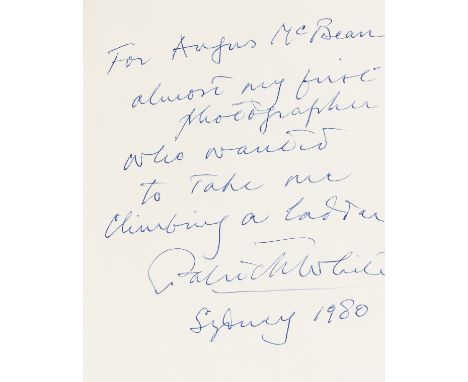 For Angus McBean
almost my first
photographer
who wanted
to take me
climbing a ladder
Patrick White
Sydney 1980